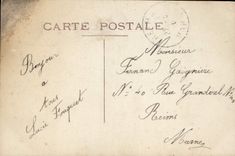 CARTE POSTALE
Bonjour
à
tous
Lucie
Monsieur
Fernand
N° 20 Rue Grandval
Reims
Marne